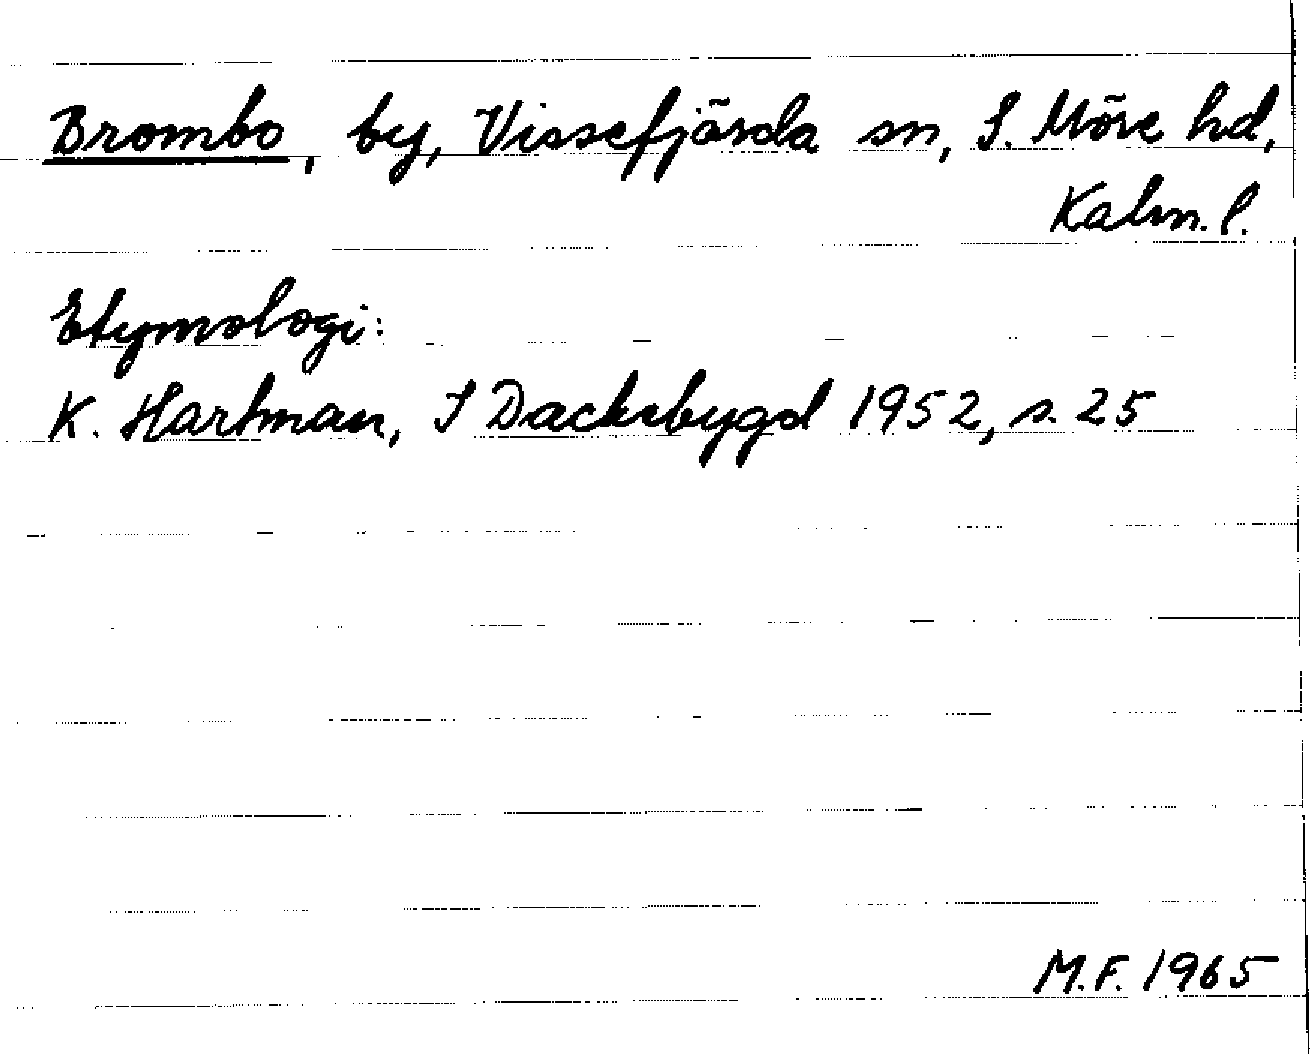 Brombo, by, Vissefjärda sn, S. Möre hd,
Kalm. l.
Etymologi:
K. Hartman, I Dackebygd 1952, s. 25
M.F. 1965